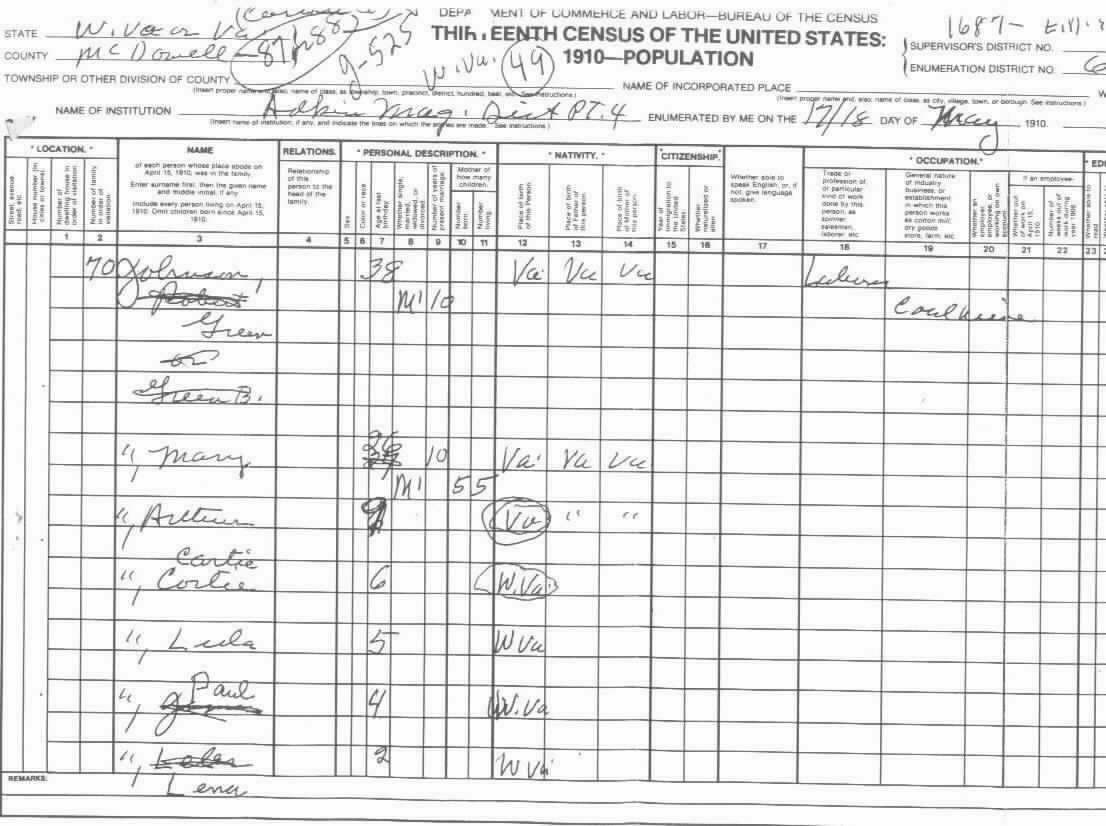 DEPA MENT OF COMMERCE AND LABOR—BUREAU OF THE CENSUS
THIR EENTH CENSUS OF THE UNITED STATES:
1910—POPULATION
1687-
STATE W. Va or Va
871-882
g-525
COUNTY McDowell
W. Va. 49
SUPERVISOR'S DISTRICT NO.
ENUMERATION DISTRICT NO. 6
TOWNSHIP OR OTHER DIVISION OF COUNTY
(Insert proper name and, also, name of class, as township, town, precinct, district, hundred, beat, etc. See instructions.)
NAME OF INCORPORATED PLACE
(Insert proper name and, also, name of class, as city, village, town, or borough. See instructions.)
NAME OF INSTITUTION Adkin Mag. Dist PT. 4
(Insert name of institution, if any, and indicate the lines on which the entries are made. See instructions.)
ENUMERATED BY ME ON THE 17/18 DAY OF May 1910.
* LOCATION. * NAME RELATIONS. * PERSONAL DESCRIPTION. * * NATIVITY. * *CITIZENSHIP. * OCCUPATION.* * EDU
Street, avenue road, etc.
House number (in cities or towns).
Number of dwelling house in order of visitation.
Number of family in order of visitation.
of each person whose place abode on April 15, 1910, was in the family.
Enter surname first, then the given name and middle initial, if any
Include every person living on April 15, 1910. Omit children born since April 15, 1910.
Relationship of this person to the head of the family.
Sex
Color or race
Age at last birthday
Whether single, married, widowed, or divorced
Number of years of present marriage.
Mother of how many children.
Number born.
Number living.
Place of birth of this Person.
Place of birth of Father of this person.
Place of birth of Mother of this person.
Year of immigration to the United States
Whether naturalized or alien
Whether able to speak English, or, if not, give language spoken.
Trade or profession of, or particular kind of work done by this person, as spinner, salesman, laborer, etc
General nature of industry business, or establishment in which this person works as cotton mill, dry goods store, farm, etc.
Whether an employer, employee, or working on own account
If an employee-
Whether out of work on April 15, 1910
Number of weeks out of work during year 1909
Whether able to read
1 2 3 4 5 6 7 8 9 10 11 12 13 14 15 16 17 18 19 20 21 22 23
70 Johnson, 38 Va Va Va Laborer
Robert M1 10 Coal mine
Green
or
Green B.
", Mary 26 10 Va Va Va
M1 5 5
", Arthur Va " "
Cartie
", Cortie 6 W.Va
", Lula 5 W Va
Paul
", 4 W.Va
", 2 W Va
REMARKS:
Lena